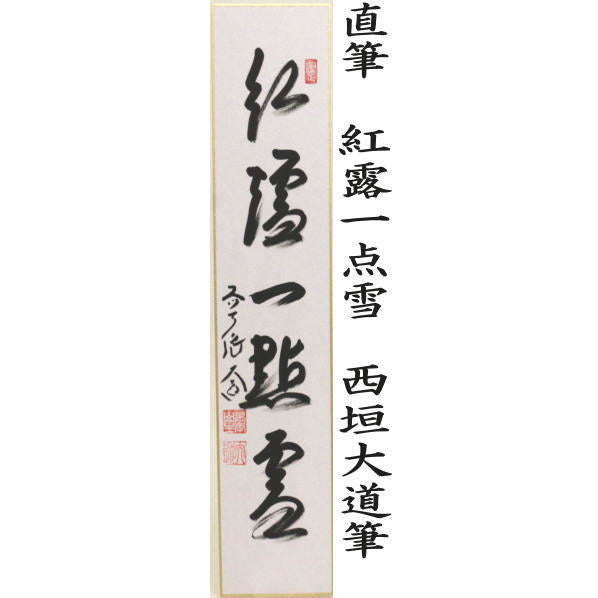 直筆 紅露一点雪 西垣大道筆
紅爐一點雪